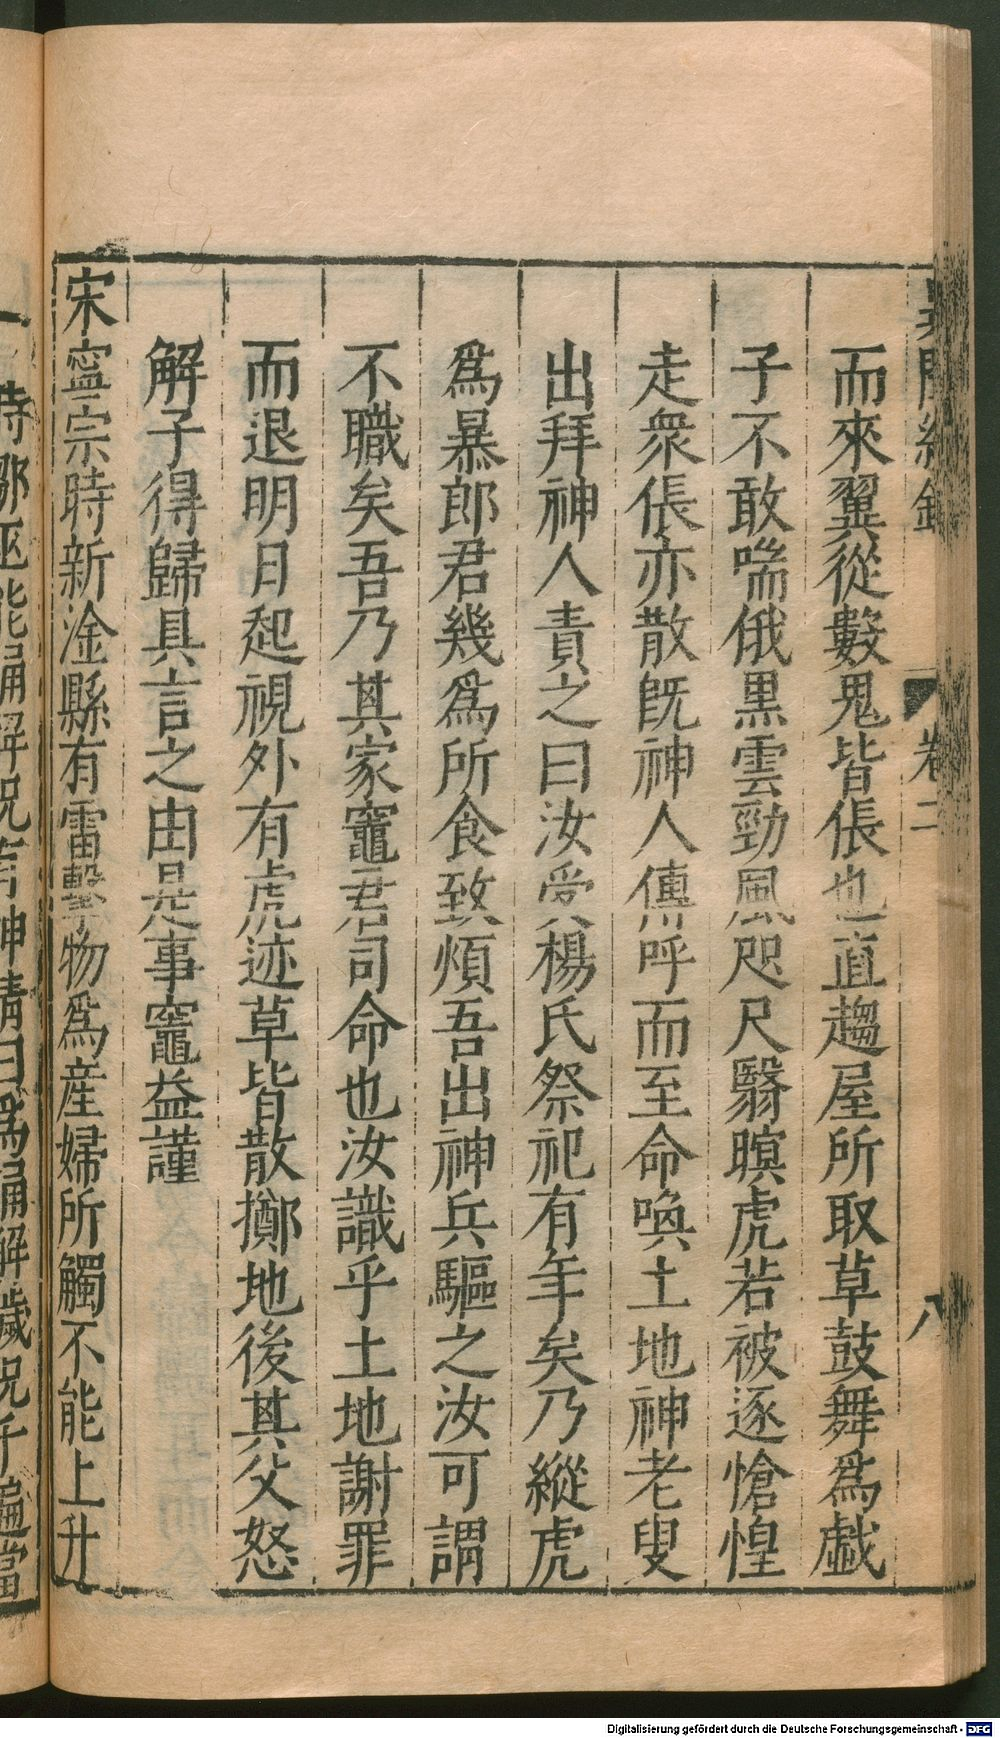 異聞總錄 卷二 八
而來翼從數鬼皆倀也直趨屋所取草鼓舞爲戱
子不敢喘俄黒雲勁風咫尺翳暝虎若被逐愴惶
走衆倀亦散旣神人傳呼而至命喚土地神老叟
出拜神人責之曰汝受楊氏祭祀有年矣乃縱虎
爲暴郎君幾爲所食致煩吾出神兵驅之汝可謂
不職矣吾乃其家竈君司命也汝識乎土地謝罪
而退明日起視外有虎迹草皆散擲地後其父怒
解子得歸具言之由是事竈益謹
宋寧宗時新淦縣有雷擊物爲産婦所觸不能上升
時鄒巫能誦解呪有神請曰爲誦解穢呪千遍當
Digitalisierung gefördert durch die Deutsche Forschungsgemeinschaft - DFG